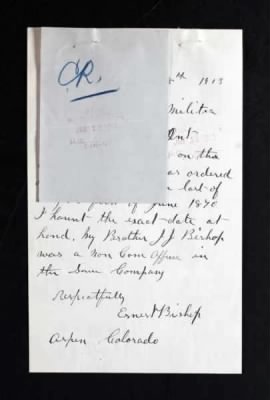 CR.
th 1913
Militia
Ont
on the
as ordered
last of
of June 1870
I haunt the exact date at
hand, my Brother J J Bishop
was a Non Com Officer in
the Same Company
Respectfully
Ernest Bishop
Aspen Colorado